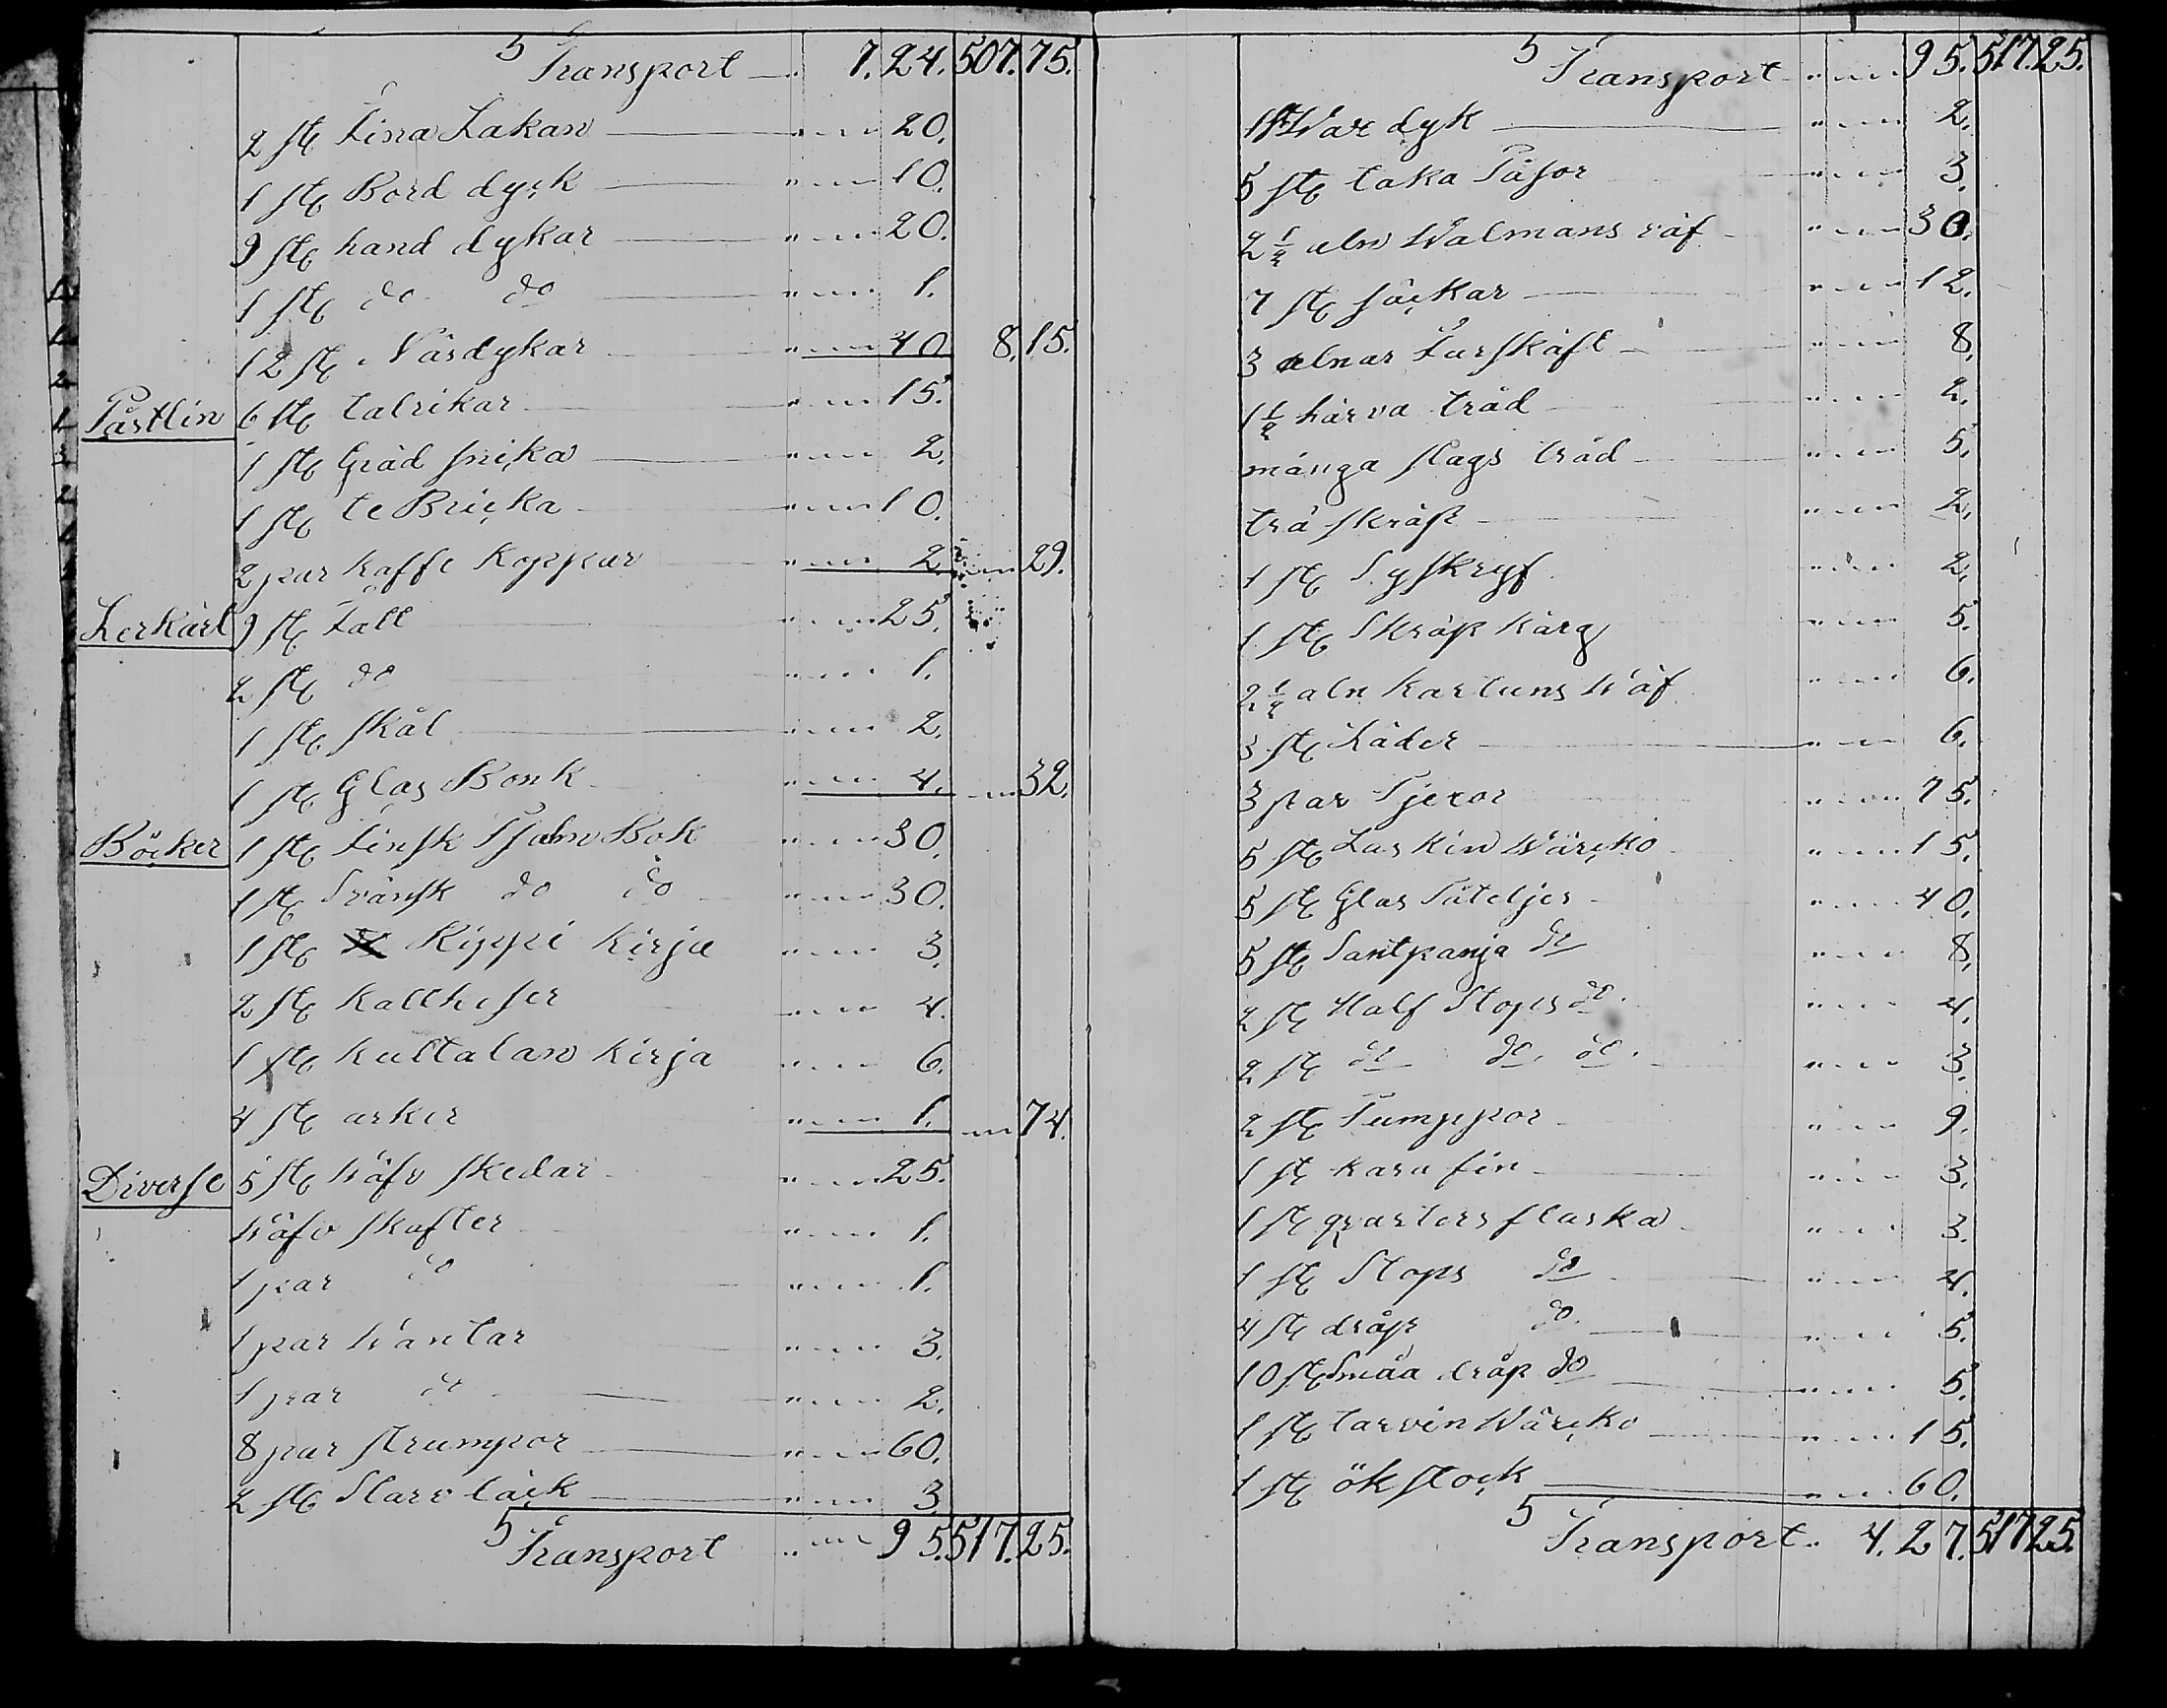 5 Transport 7.24. 507.75.
2 st Lina Lakan " 20.
1 st Bord dyck " 10.
9 st hand dykar " 20.
1 st do do " 1.
12 st Närdykar " 40 8.15.
Pårtlin 6 st talrikar " 15.
1 st Gräd snika " 2.
1 st te Bricka " 10.
2 par kaffe koppar " 2. " 29.
Lerkärl 9 st Fatt " 25.
2 st do " 1.
1 st skål " 2.
1 st Glas Bonk " 4. " 32.
Böcker 1 st Finsk Psalm Bok " 30.
1 st Svänsk do do " 30.
1 st Rippi Kirja " 3.
2 st Kattheser " 4.
1 st Kultalan Kirja " 6.
4 st arker " 1. " 74.
Diverse 5 st Väfv skedar " 25.
Väfv skafter " 1.
1 par do " 1.
1 par Vantar " 3.
1 par do " 2.
8 par strumpor " 60.
2 st Starv läck " 3.
5 Transport " 95. 517.25.
5 Transport " 95. 517.25.
1 st Var dyk " 2.
5 st taka Påsor " 3.
2 1/2 aln Valmans väf " 30.
7 st säckar " 12.
3 alnar Furskaft " 8.
1 1/2 härva tråd " 2.
många slags tråd " 5.
trä skräp " 2.
1 st Syskryf " 2.
1 st Skräp korg " 5.
2 1/2 aln Kartuns Väf " 6.
3 st Läder " 6.
3 par Pjexor " 75.
5 st Laskin Värcko " 15.
5 st Glas Puteljer " 40.
5 st Santpanja do " 8.
2 st Half Stops do " 4.
2 st do do do " 3.
2 st Pumppor " 9.
1 st kara fin " 3.
1 st qvarters flaska " 3.
1 st Stops do " 4.
4 st dråp do " 5.
10 st Småa dråp do " 5.
1 st tarvin Värcko " 15.
1 st ök stock " 60.
5 Transport. 4.27. 517 25.